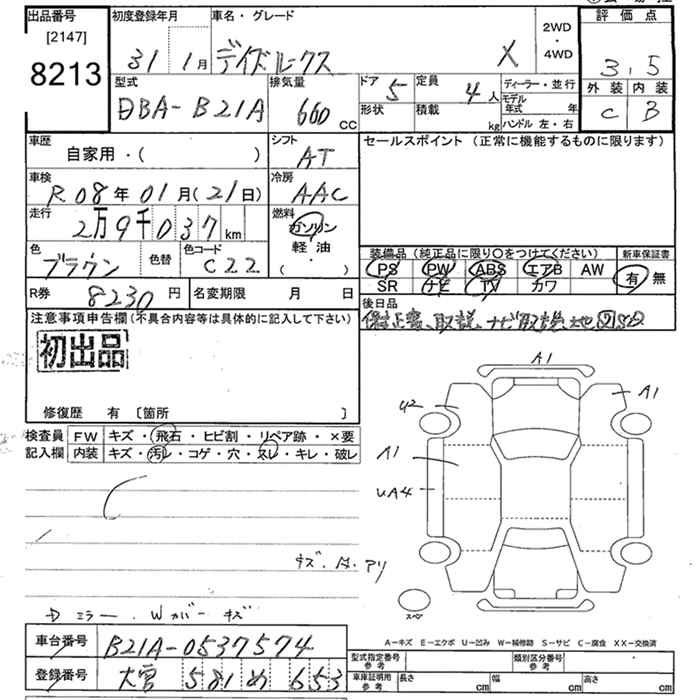 出品番号 初度登録年月 車名・グレード 評価点
[2147] 8213 31 1月 デイズルークス X 2WD・4WD 3.5
型式 排気量 ドア 5 定員 4人 ディーラー・並行 外装 内装
DBA-B21A 660 CC 形状 積載 kg モデル年式 年 ハンドル 左・右 C B
車歴 シフト セールスポイント (正常に機能するものに限ります)
自家用・( ) AT
車検 冷房
R08年01月(21日) AAC
走行 燃料
2万9千037km ガソリン
軽油
・( )
色 色替 色コード 装備品(純正品に限り○をつけてください) 新車保証書
ブラウン C22 PS PW ABS エアB AW 有・無
SR ナビ TV カワ
R券 8230円 名変期限 月 日 後日品
注意事項申告欄(不具合内容等は具体的に記入して下さい) 保証書、取説、ナビ取説
初出品
修復歴 有 [箇所 ]
検査員 FW キズ・飛石・ヒビ割・リペア跡・×要
記入欄 内装 キズ・汚レ・コゲ・穴・スレ・キレ・破レ
A1
A1
U2
A1
UA4
キズ・A・アリ
スペア
ミラー、Wカバーキズ
A-キズ E-エクボ U-凹み W-補修跡 S-サビ C-腐食 XX-交換済
車台番号 B21A-0537574 型式指定番号 参考 類別区分番号 参考
登録番号 大宮 581 め 653 車庫証明用 参考 長さ cm 幅 cm 高さ cm